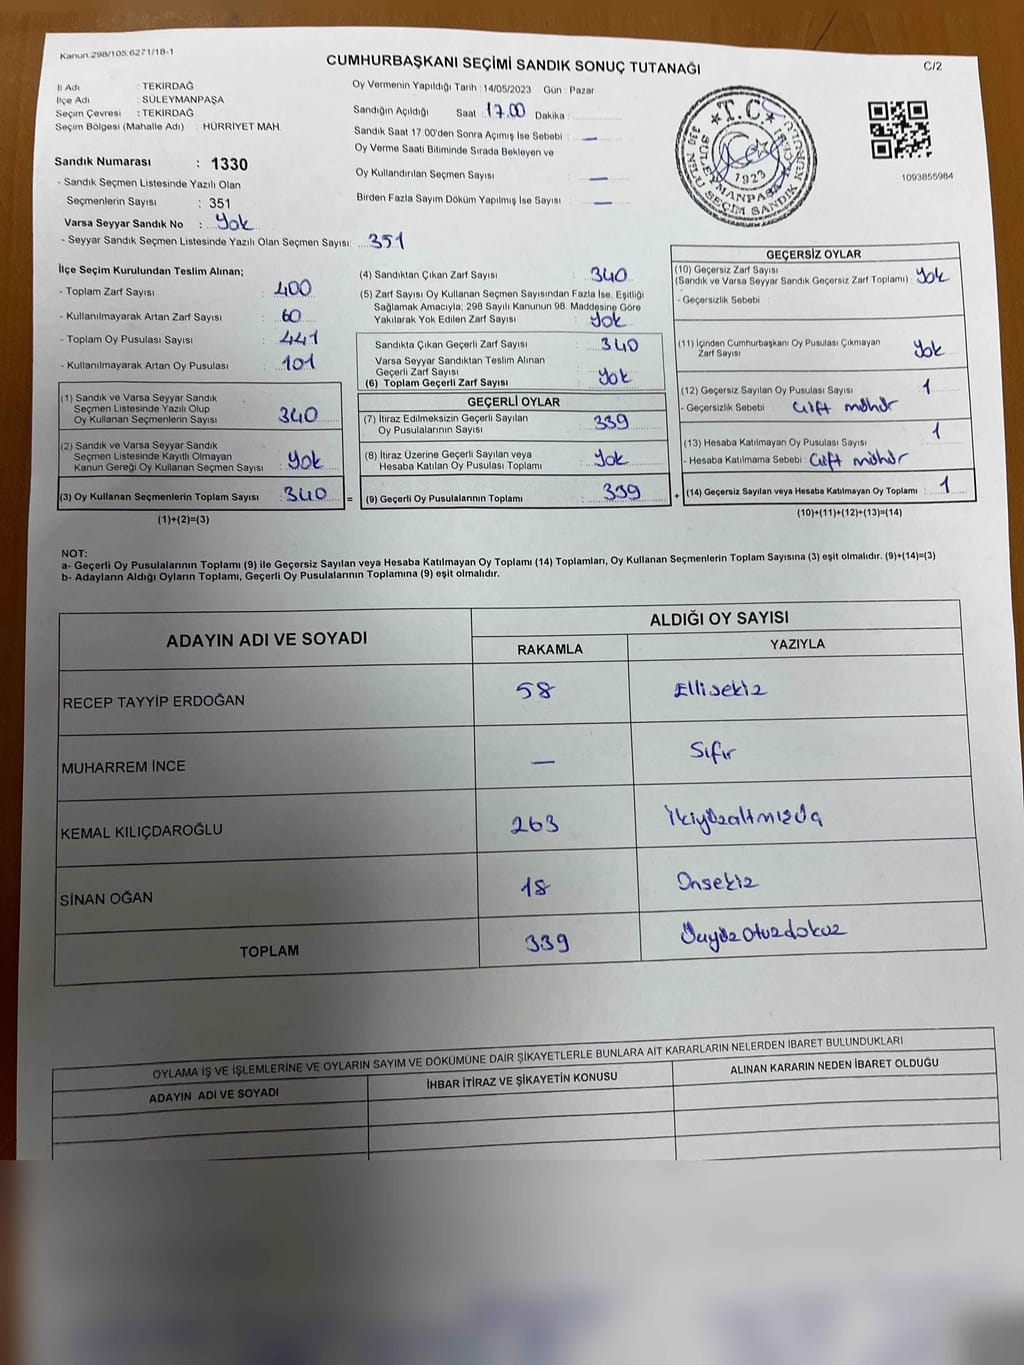 Kanun.298/105.6271/18-1
CUMHURBAŞKANI SEÇİMİ SANDIK SONUÇ TUTANAĞI
C/2
İl Adı : TEKİRDAĞ
İlçe Adı : SÜLEYMANPAŞA
Seçim Çevresi : TEKİRDAĞ
Seçim Bölgesi (Mahalle Adı) : HÜRRİYET MAH.
Sandık Numarası : 1330
- Sandık Seçmen Listesinde Yazılı Olan
Seçmenlerin Sayısı : 351
Varsa Seyyar Sandık No : Yok
- Seyyar Sandık Seçmen Listesinde Yazılı Olan Seçmen Sayısı: 351
Oy Vermenin Yapıldığı Tarih : 14/05/2023 Gün : Pazar
Sandığın Açıldığı Saat 17.00 Dakika :
Sandık Saat 17.00'den Sonra Açımış İse Sebebi : —
Oy Verme Saati Bitiminde Sırada Bekleyen ve
Oy Kullandırılan Seçmen Sayısı : —
Birden Fazla Sayım Döküm Yapılmış İse Sayısı : —
T.C.
1923
SÜLEYMANPAŞA
1093855984
İlçe Seçim Kurulundan Teslim Alınan;
- Toplam Zarf Sayısı : 400
- Kullanılmayarak Artan Zarf Sayısı : 60
- Toplam Oy Pusulası Sayısı : 441
- Kullanılmayarak Artan Oy Pusulası : 101
(1) Sandık ve Varsa Seyyar Sandık
Seçmen Listesinde Yazılı Olup
Oy Kullanan Seçmenlerin Sayısı : 340
(2) Sandık ve Varsa Seyyar Sandık
Seçmen Listesinde Kayıtlı Olmayan
Kanun Gereği Oy Kullanan Seçmen Sayısı : Yok
(3) Oy Kullanan Seçmenlerin Toplam Sayısı : 340 =
(1)+(2)=(3)
(4) Sandıktan Çıkan Zarf Sayısı : 340
(5) Zarf Sayısı Oy Kullanan Seçmen Sayısından Fazla İse, Eşitliği
Sağlamak Amacıyla; 298 Sayılı Kanunun 98. Maddesine Göre
Yakılarak Yok Edilen Zarf Sayısı : Yok
Sandıkta Çıkan Geçerli Zarf Sayısı : 340
Varsa Seyyar Sandıktan Teslim Alınan
Geçerli Zarf Sayısı : Yok
(6) Toplam Geçerli Zarf Sayısı
GEÇERLİ OYLAR
(7) İtiraz Edilmeksizin Geçerli Sayılan
Oy Pusulalarının Sayısı : 339
(8) İtiraz Üzerine Geçerli Sayılan veya
Hesaba Katılan Oy Pusulası Toplamı : Yok
(9) Geçerli Oy Pusulalarının Toplamı : 339 +
GEÇERSİZ OYLAR
(10) Geçersiz Zarf Sayısı
(Sandık ve Varsa Seyyar Sandık Geçersiz Zarf Toplamı) : Yok
- Geçersizlik Sebebi :
(11) İçinden Cumhurbaşkanı Oy Pusulası Çıkmayan
Zarf Sayısı : Yok
(12) Geçersiz Sayılan Oy Pusulası Sayısı : 1
- Geçersizlik Sebebi : Çift mühür
(13) Hesaba Katılmayan Oy Pusulası Sayısı : 1
- Hesaba Katılmama Sebebi : Çift mühür
(14) Geçersiz Sayılan veya Hesaba Katılmayan Oy Toplamı : 1
(10)+(11)+(12)+(13)=(14)
NOT:
a- Geçerli Oy Pusulalarının Toplamı (9) ile Geçersiz Sayılan veya Hesaba Katılmayan Oy Toplamı (14) Toplamları, Oy Kullanan Seçmenlerin Toplam Sayısına (3) eşit olmalıdır. (9)+(14)=(3)
b- Adayların Aldığı Oyların Toplamı, Geçerli Oy Pusulalarının Toplamına (9) eşit olmalıdır.
ADAYIN ADI VE SOYADI
ALDIĞI OY SAYISI
RAKAMLA YAZIYLA
RECEP TAYYİP ERDOĞAN 58 Ellisekiz
MUHARREM İNCE — Sıfır
KEMAL KILIÇDAROĞLU 263 İkiyüzaltmışüç
SİNAN OĞAN 18 Onsekiz
TOPLAM 339 Üçyüzotuzdokuz
OYLAMA İŞ VE İŞLEMLERİNE VE OYLARIN SAYIM VE DÖKÜMÜNE DAİR ŞİKAYETLERLE BUNLARA AİT KARARLARIN NELERDEN İBARET BULUNDUKLARI
ADAYIN ADI VE SOYADI İHBAR İTİRAZ VE ŞİKAYETİN KONUSU ALINAN KARARIN NEDEN İBARET OLDUĞU